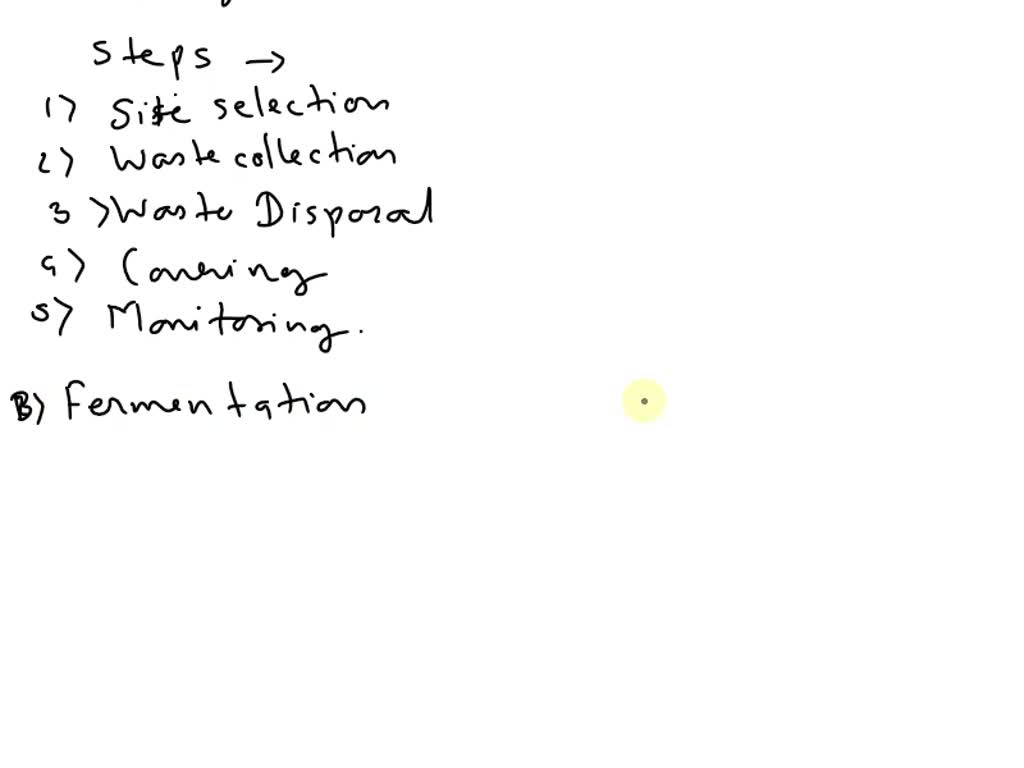 Steps →
1) Site selection
2) Waste collection
3 > Waste Disposal
4) Covering
5) Monitoring.
B) Fermentation